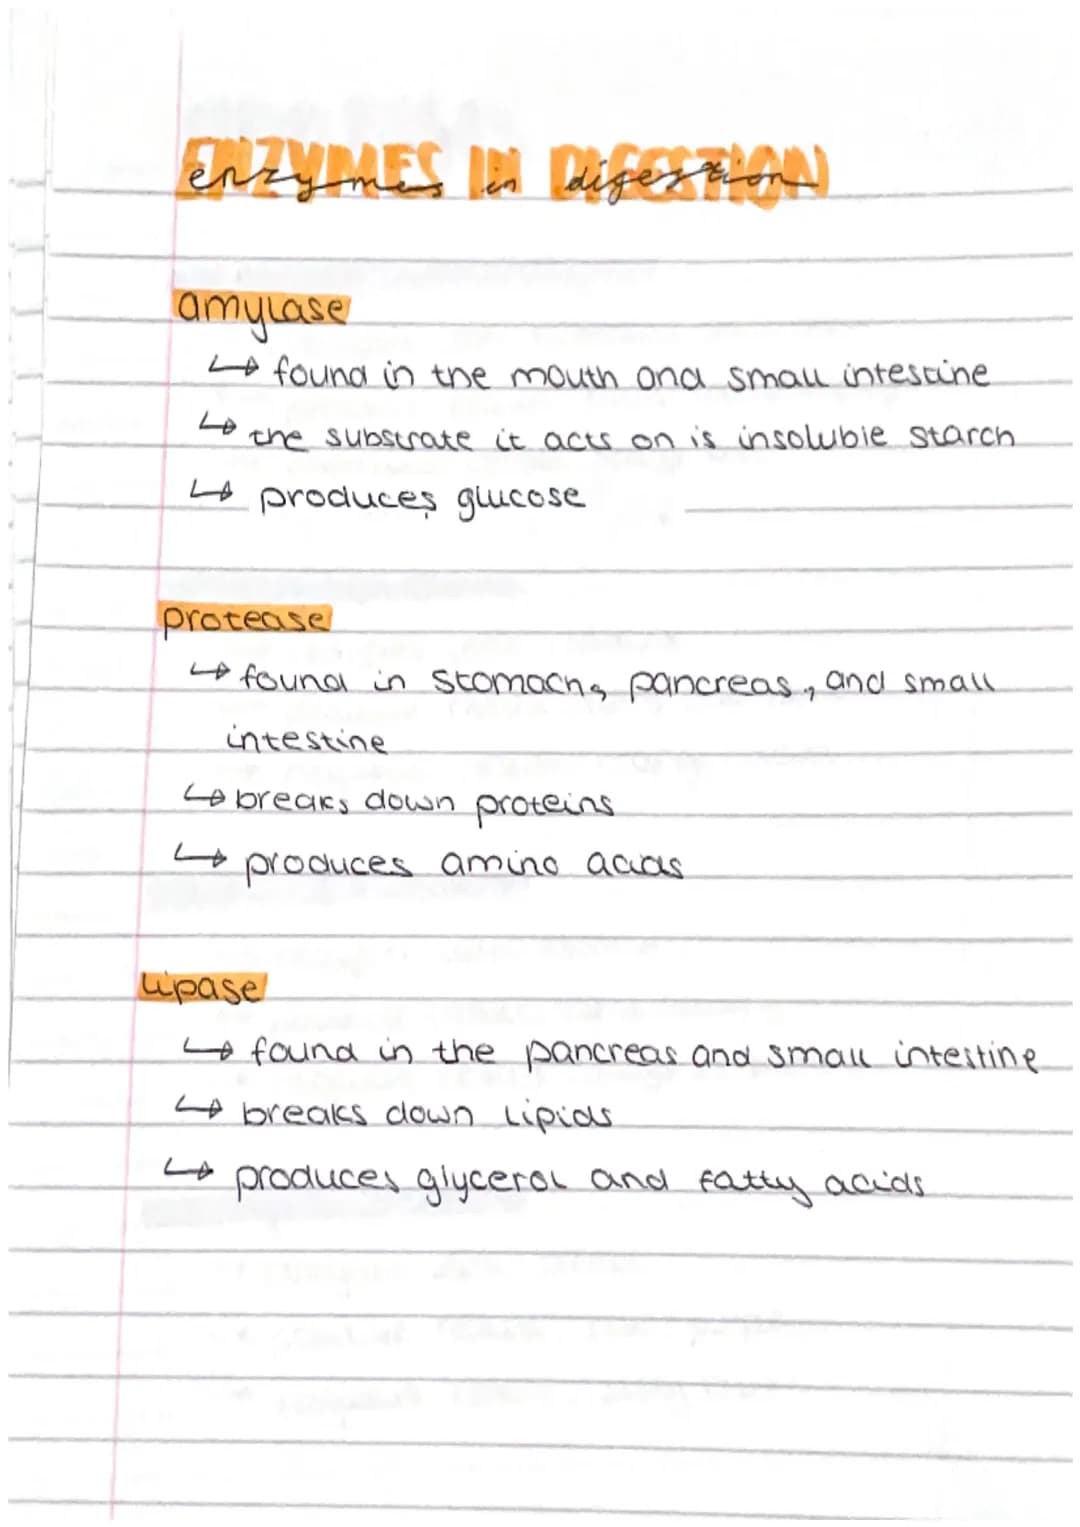 ENZYMES IN DIGESTION
enzymes in digestion
amylase
↳ found in the mouth and small intestine
↳ the substrate it acts on is insoluble starch
↳ produces glucose
protease
↳ found in stomach, pancreas, and small
intestine
↳ breaks down proteins
↳ produces amino acids
lipase
↳ found in the pancreas and small intestine
↳ breaks down lipids
↳ produces glycerol and fatty acids